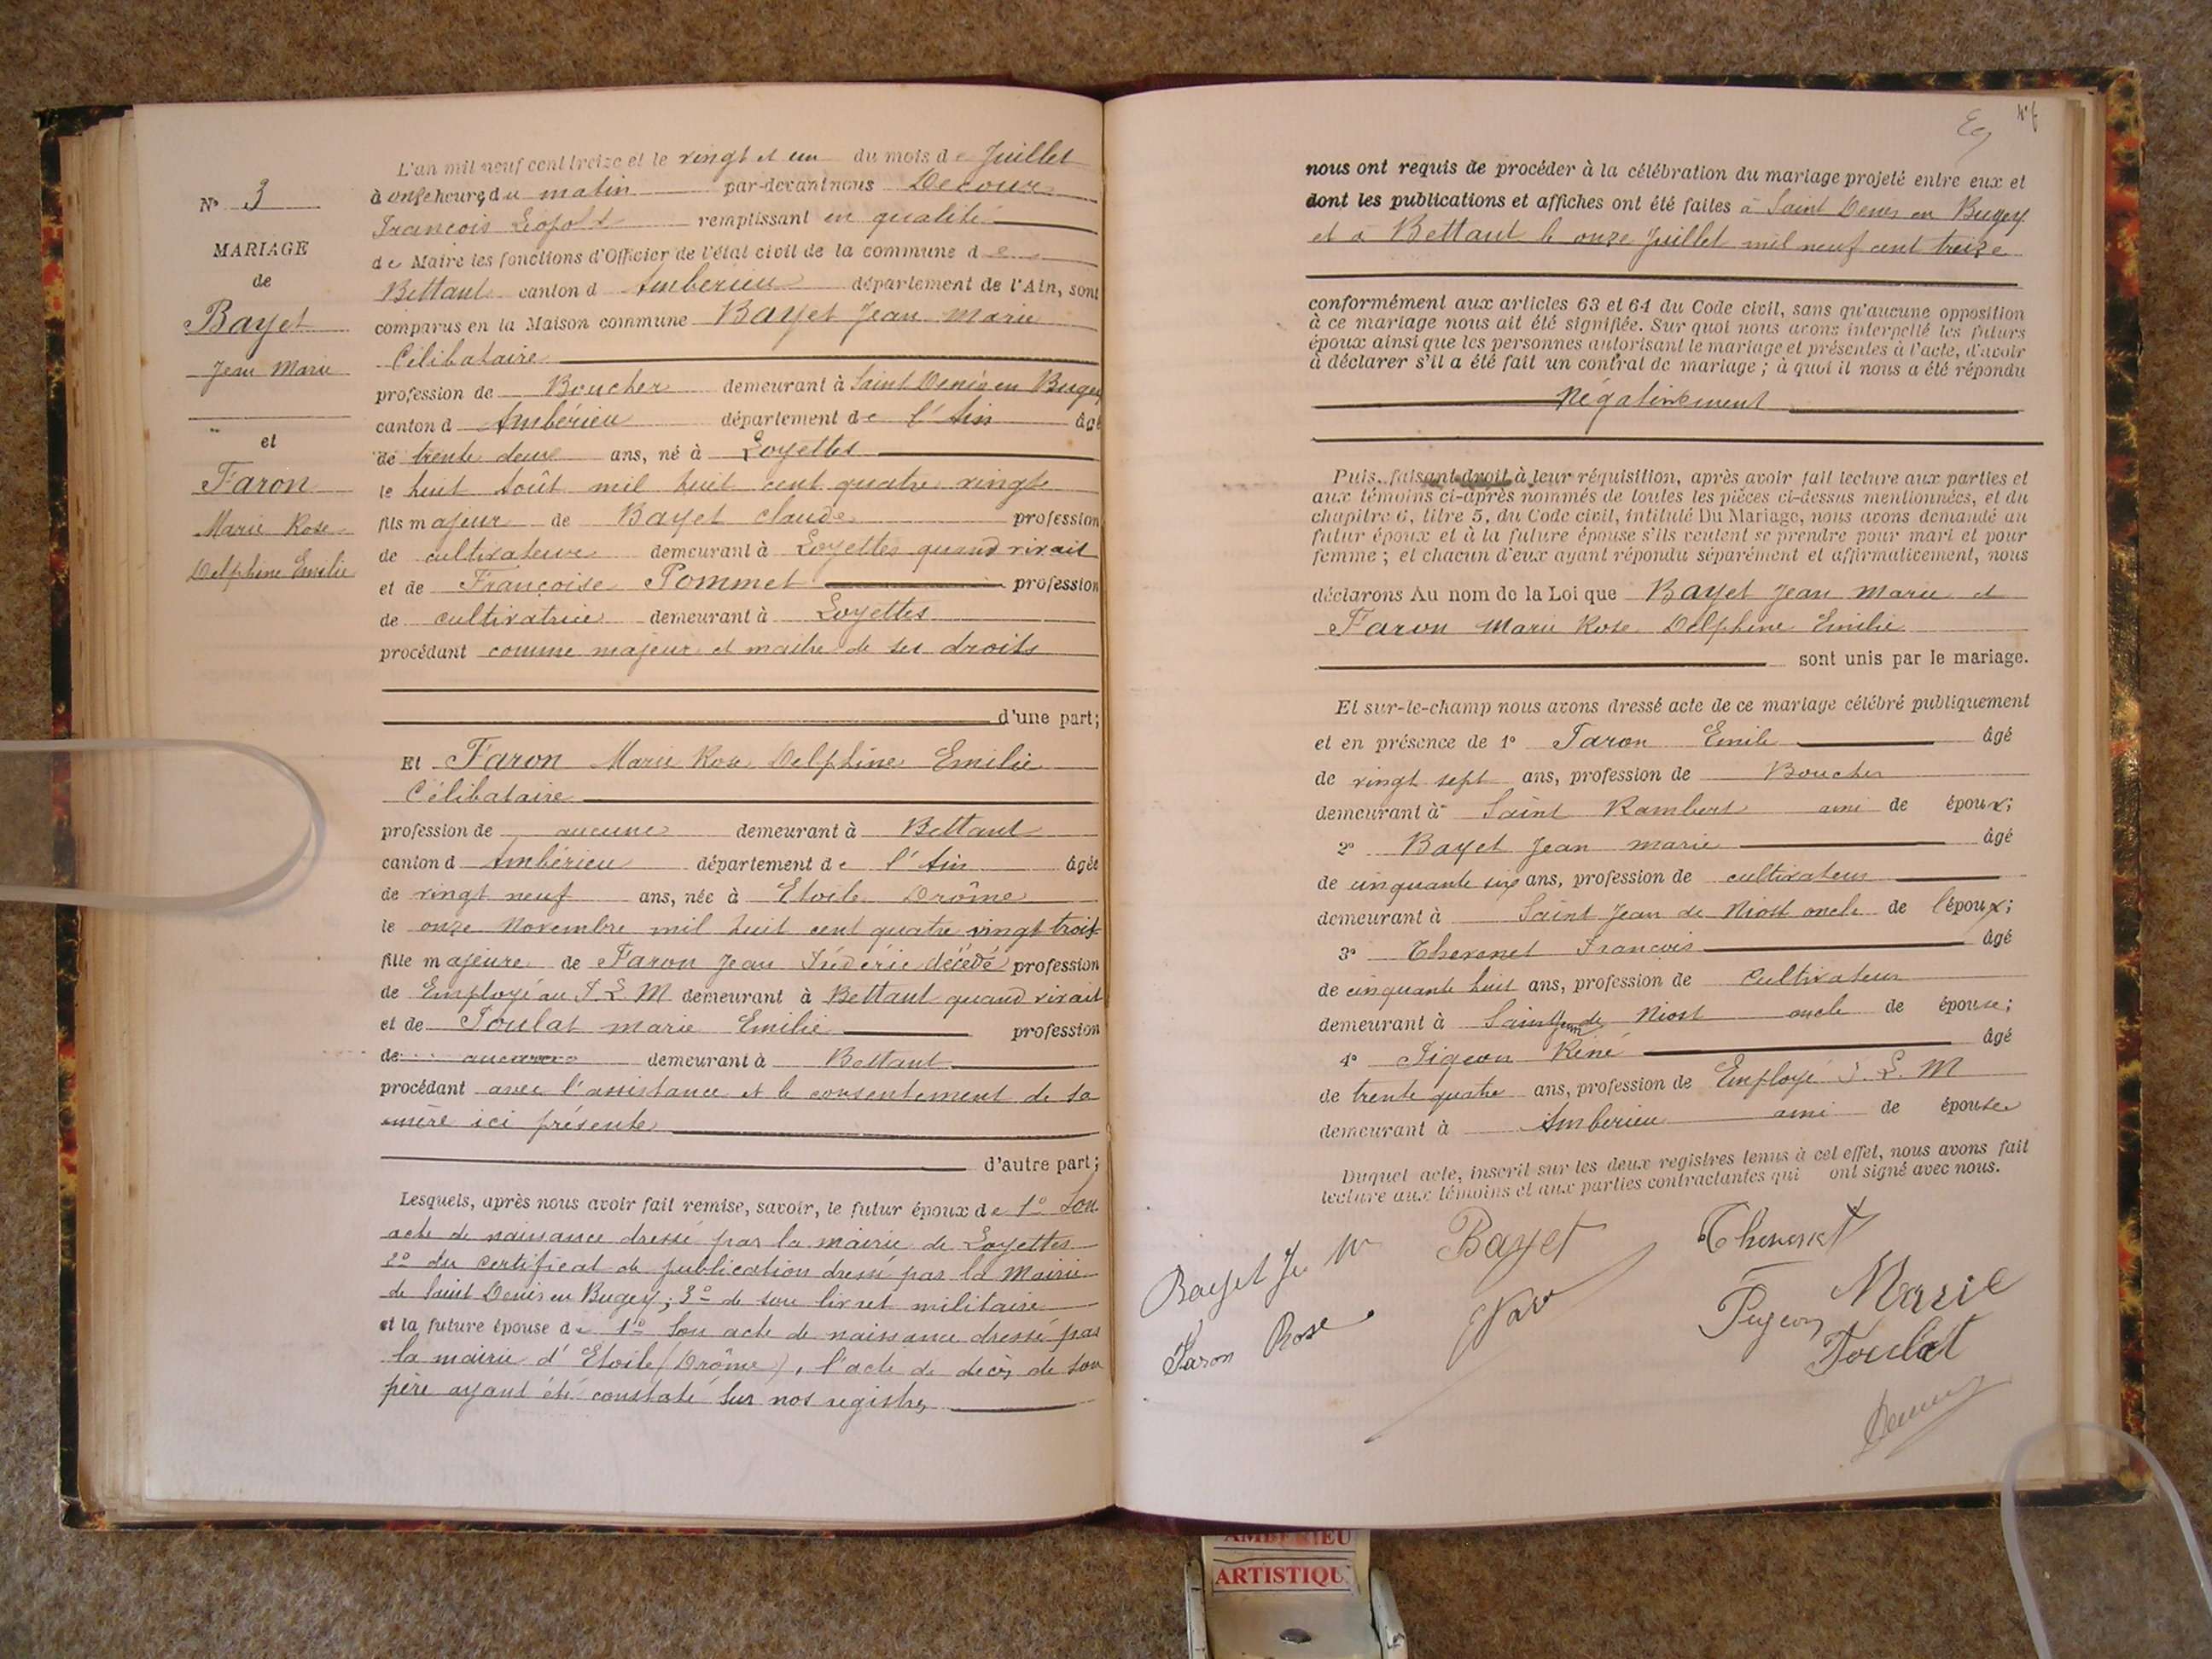 N° 3
MARIAGE
de
Bayet
Jean Marie
et
Faron
Marie Rose
Delphine Emilie
L'an mil neuf cent treize et le vingt et un du mois de Juillet
à onze heures du matin par-devant nous Decour
François Léopold remplissant en qualité
de Maire les fonctions d'Officier de l'état civil de la commune de
Bettant canton d Ambérieu département de l'Ain, sont
comparus en la Maison commune Bayet Jean Marie
Célibataire
profession de Boucher demeurant à Saint Denis en Bugey
canton d Ambérieu département de l'Ain âgé
de trente deux ans, né à Loyettes
le huit Août mil huit cent quatre vingt
fils majeur de Bayet Claude profession
de cultivateur demeurant à Loyettes quand vivait
et de Françoise Pommet profession
de cultivatrice demeurant à Loyettes
procédant comme majeur et maitre de ses droits
d'une part;
Et Faron Marie Rose Delphine Emilie
Célibataire
profession de aucune demeurant à Bettant
canton d Ambérieu département de l'Ain âgée
de vingt neuf ans, née à Etoile Drôme
le onze Novembre mil huit cent quatre vingt trois
fille majeure de Faron Jean Frédéric décédé profession
de Employé au P. L. M demeurant à Bettant quand vivait
et de Foulat marie Emilie profession
de aucune demeurant à Bettant
procédant avec l'assistance et le consentement de sa
mère ici présente
d'autre part;
Lesquels, après nous avoir fait remise, savoir, le futur époux de 1° Son
acte de naissance dressé par la mairie de Loyettes
2° du certificat de publication dressé par la Mairie
de Saint Denis en Bugey; 3° de son livret militaire
et la future épouse de 1° Son acte de naissance dressé par
la mairie d'Etoile (Drôme), l'acte de décès de son
père ayant été constaté sur nos registres
nous ont requis de procéder à la célébration du mariage projeté entre eux et
dont les publications et affiches ont été faites à Saint Denis en Bugey
et à Bettant le onze Juillet mil neuf cent treize
conformément aux articles 63 et 64 du Code civil, sans qu'aucune opposition
à ce mariage nous ait été signifiée. Sur quoi nous avons interpellé les futurs
époux ainsi que les personnes autorisant le mariage et présentes à l'acte, d'avoir
à déclarer s'il a été fait un contrat de mariage; à quoi il nous a été répondu
Négativement
Puis, faisant droit à leur réquisition, après avoir fait lecture aux parties et
aux témoins ci-après nommés de toutes les pièces ci-dessus mentionnées, et du
chapitre 6, titre 5, du Code civil, intitulé Du Mariage, nous avons demandé au
futur époux et à la future épouse s'ils veulent se prendre pour mari et pour
femme; et chacun d'eux ayant répondu séparément et affirmativement, nous
déclarons Au nom de la Loi que Bayet Jean Marie et
Faron Marie Rose Delphine Emilie
sont unis par le mariage.
Et sur-le-champ nous avons dressé acte de ce mariage célébré publiquement
et en présence de 1° Faron Emile âgé
de vingt sept ans, profession de Boucher
demeurant à Saint Rambert ami de époux;
2° Bayet Jean marie âgé
de cinquante six ans, profession de cultivateur
demeurant à Saint Jean de Niost oncle de l'époux;
3° Thevenet François âgé
de cinquante huit ans, profession de Cultivateur
demeurant à Saint Jean de Niost oncle de épouse;
4° Pigeon Réné âgé
de trente quatre ans, profession de Employé P. L. M
demeurant à Ambérieu ami de épouse
Duquel acte, inscrit sur les deux registres tenus à cet effet, nous avons fait
lecture aux témoins et aux parties contractantes qui ont signé avec nous.
Bayet J. M Bayet Thevenet
Faron Rose Pigeon Marie
Foulat
Decour
AMBERIEU
ARTISTIQU